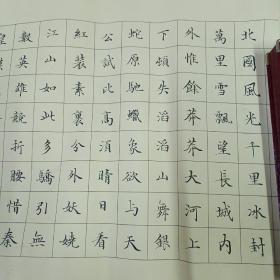 北國風光千里冰封
萬里雪飄望長城內
外惟餘莽莽大河上
下頓失滔滔山舞銀
蛇原馳蠟象欲与天
公試比高須晴日看
紅裝素裹分外妖嬈
江山如此多驕引無
數英雄競折腰惜秦
皇